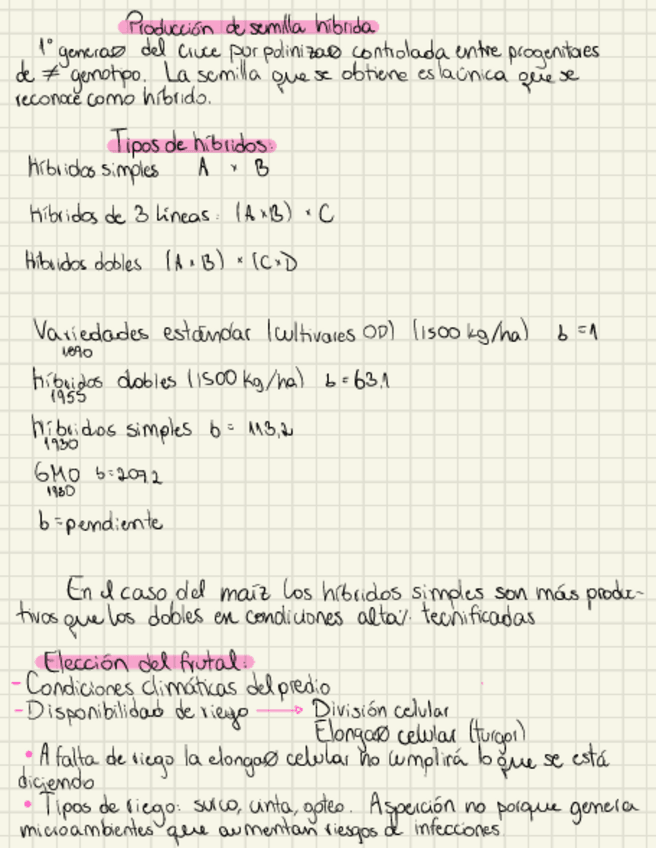 Producción de semilla híbrida
1° generaø del cruce por polinizaø controlada entre progenitores
de ≠ genotipo. La semilla que se obtiene es la única que se
reconoce como híbrido.
Tipos de híbridos:
Híbridos simples A × B
Híbridos de 3 líneas: (A×B) × C
Híbridos dobles (A×B) × (C×D
Variedades estándar (cultivares OP) (1500 kg/ha) b=1
1890
híbridos dobles (1500 kg/ha) b=63,1
1955
híbridos simples b= 113,2
1930
GMO b=209,2
1980
b=pendiente
En el caso del maíz los híbridos simples son más produc-
tivos que los dobles en condiciones alta٪ tecnificadas
Elección del frutal:
- Condiciones climáticas del predio
- Disponibilidad de riego → División celular
Elongaø celular (turgor)
• A falta de riego la elongaø celular no cumplirá lo que se está
diciendo
• Tipos de riego: surco, cinta, goteo. Asperción no porque genera
microambientes que aumentan riesgos de infecciones